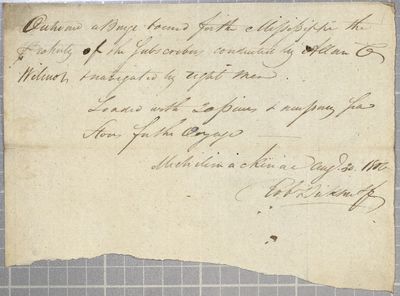 Outward a Barge bound for the Mississippi the
Property of the Subscriber conducted by Allan C
Wilmot & navigated by eight men.
Loaded with 20 pieces & necessary Sea
Stores for the Voyage
Michilimackinac Aug. 20. 1806
Robt Dickson